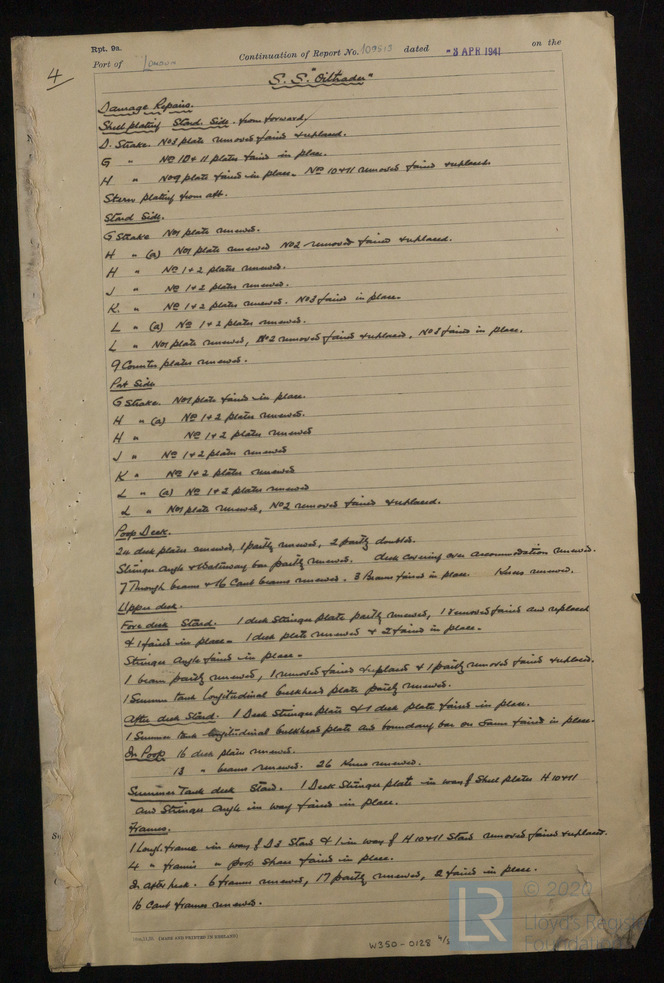 Rpt. 9a.
4
Port of London Continuation of Report No. 109513 dated -8 APR 1941 on the
S.S. "Oiltrader"
Damage Repairs.
Shell plating Starbd. Side. from forward
D. Strake. No3 plate removed faired & replaced.
G " No 10 & 11 plates faired in place.
H " No9 plate faired in place. No 10 & 11 removed faired & replaced.
Stern plating from aft.
Starbd Side.
G Strake No1 plate renewed.
H " (a) No1 plate renewed No2 removed faired & replaced.
H " No 1 & 2 plates renewed.
J " No 1 & 2 plates renewed.
K. " No 1 & 2 plates renewed. No3 faired in place.
L " (a) No 1 & 2 plates renewed.
L " No1 plate renewed, No2 removed faired & replaced, No3 faired in place.
9 Counter plates renewed.
Port Side
G Strake. No1 plate faired in place.
H " (a) No 1 & 2 plates renewed.
H " No 1 & 2 plates renewed
J " No 1 & 2 plates renewed
K " No 1 & 2 plates renewed
L " (a) No 1 & 2 plates renewed
L " No1 plate renewed, No2 removed faired & replaced.
Poop Deck.
24 deck plates renewed, 1 partly renewed, 2 partly doubled.
Stringer angle & Waterway bar partly renewed. deck covering over accommodation renewed.
7 Through beams & 16 Cant beams renewed. 3 Beams faired in place. Knees renewed.
Upper deck.
Fore deck Starbd. 1 deck Stringer plate partly renewed, 1 removed faired and replaced
& 1 faired in place. 1 deck plate renewed & 2 faired in place.
Stringer angle faired in place.
1 beam partly renewed, 1 removed faired & replaced & 1 partly removed faired & replaced.
1 Summer tank longitudinal bulkhead plate partly renewed.
After deck Starbd. 1 Deck Stringer plate & 1 deck plate faired in place.
1 Summer tank longitudinal bulkhead plate and boundary bar on same faired in place.
In Poop 16 deck plates renewed.
13 " beams renewed. 26 Knees renewed.
Summer Tank deck Starbd. 1 Deck Stringer plate in way of Shell plates H 10 & 11
and Stringer angle in way faired in place.
Frames.
1 Longl. frame in way of D3 Starbd & 1 in way of H 10 & 11 Starbd removed faired & replaced.
4 " frames " faired in place.
In after peak. 6 frames renewed, 17 partly renewed, 2 faired in place.
16 Cant frames renewed.
(MADE AND PRINTED IN ENGLAND)
W350-0128
LR © 2020
Lloyd's Register
Foundation